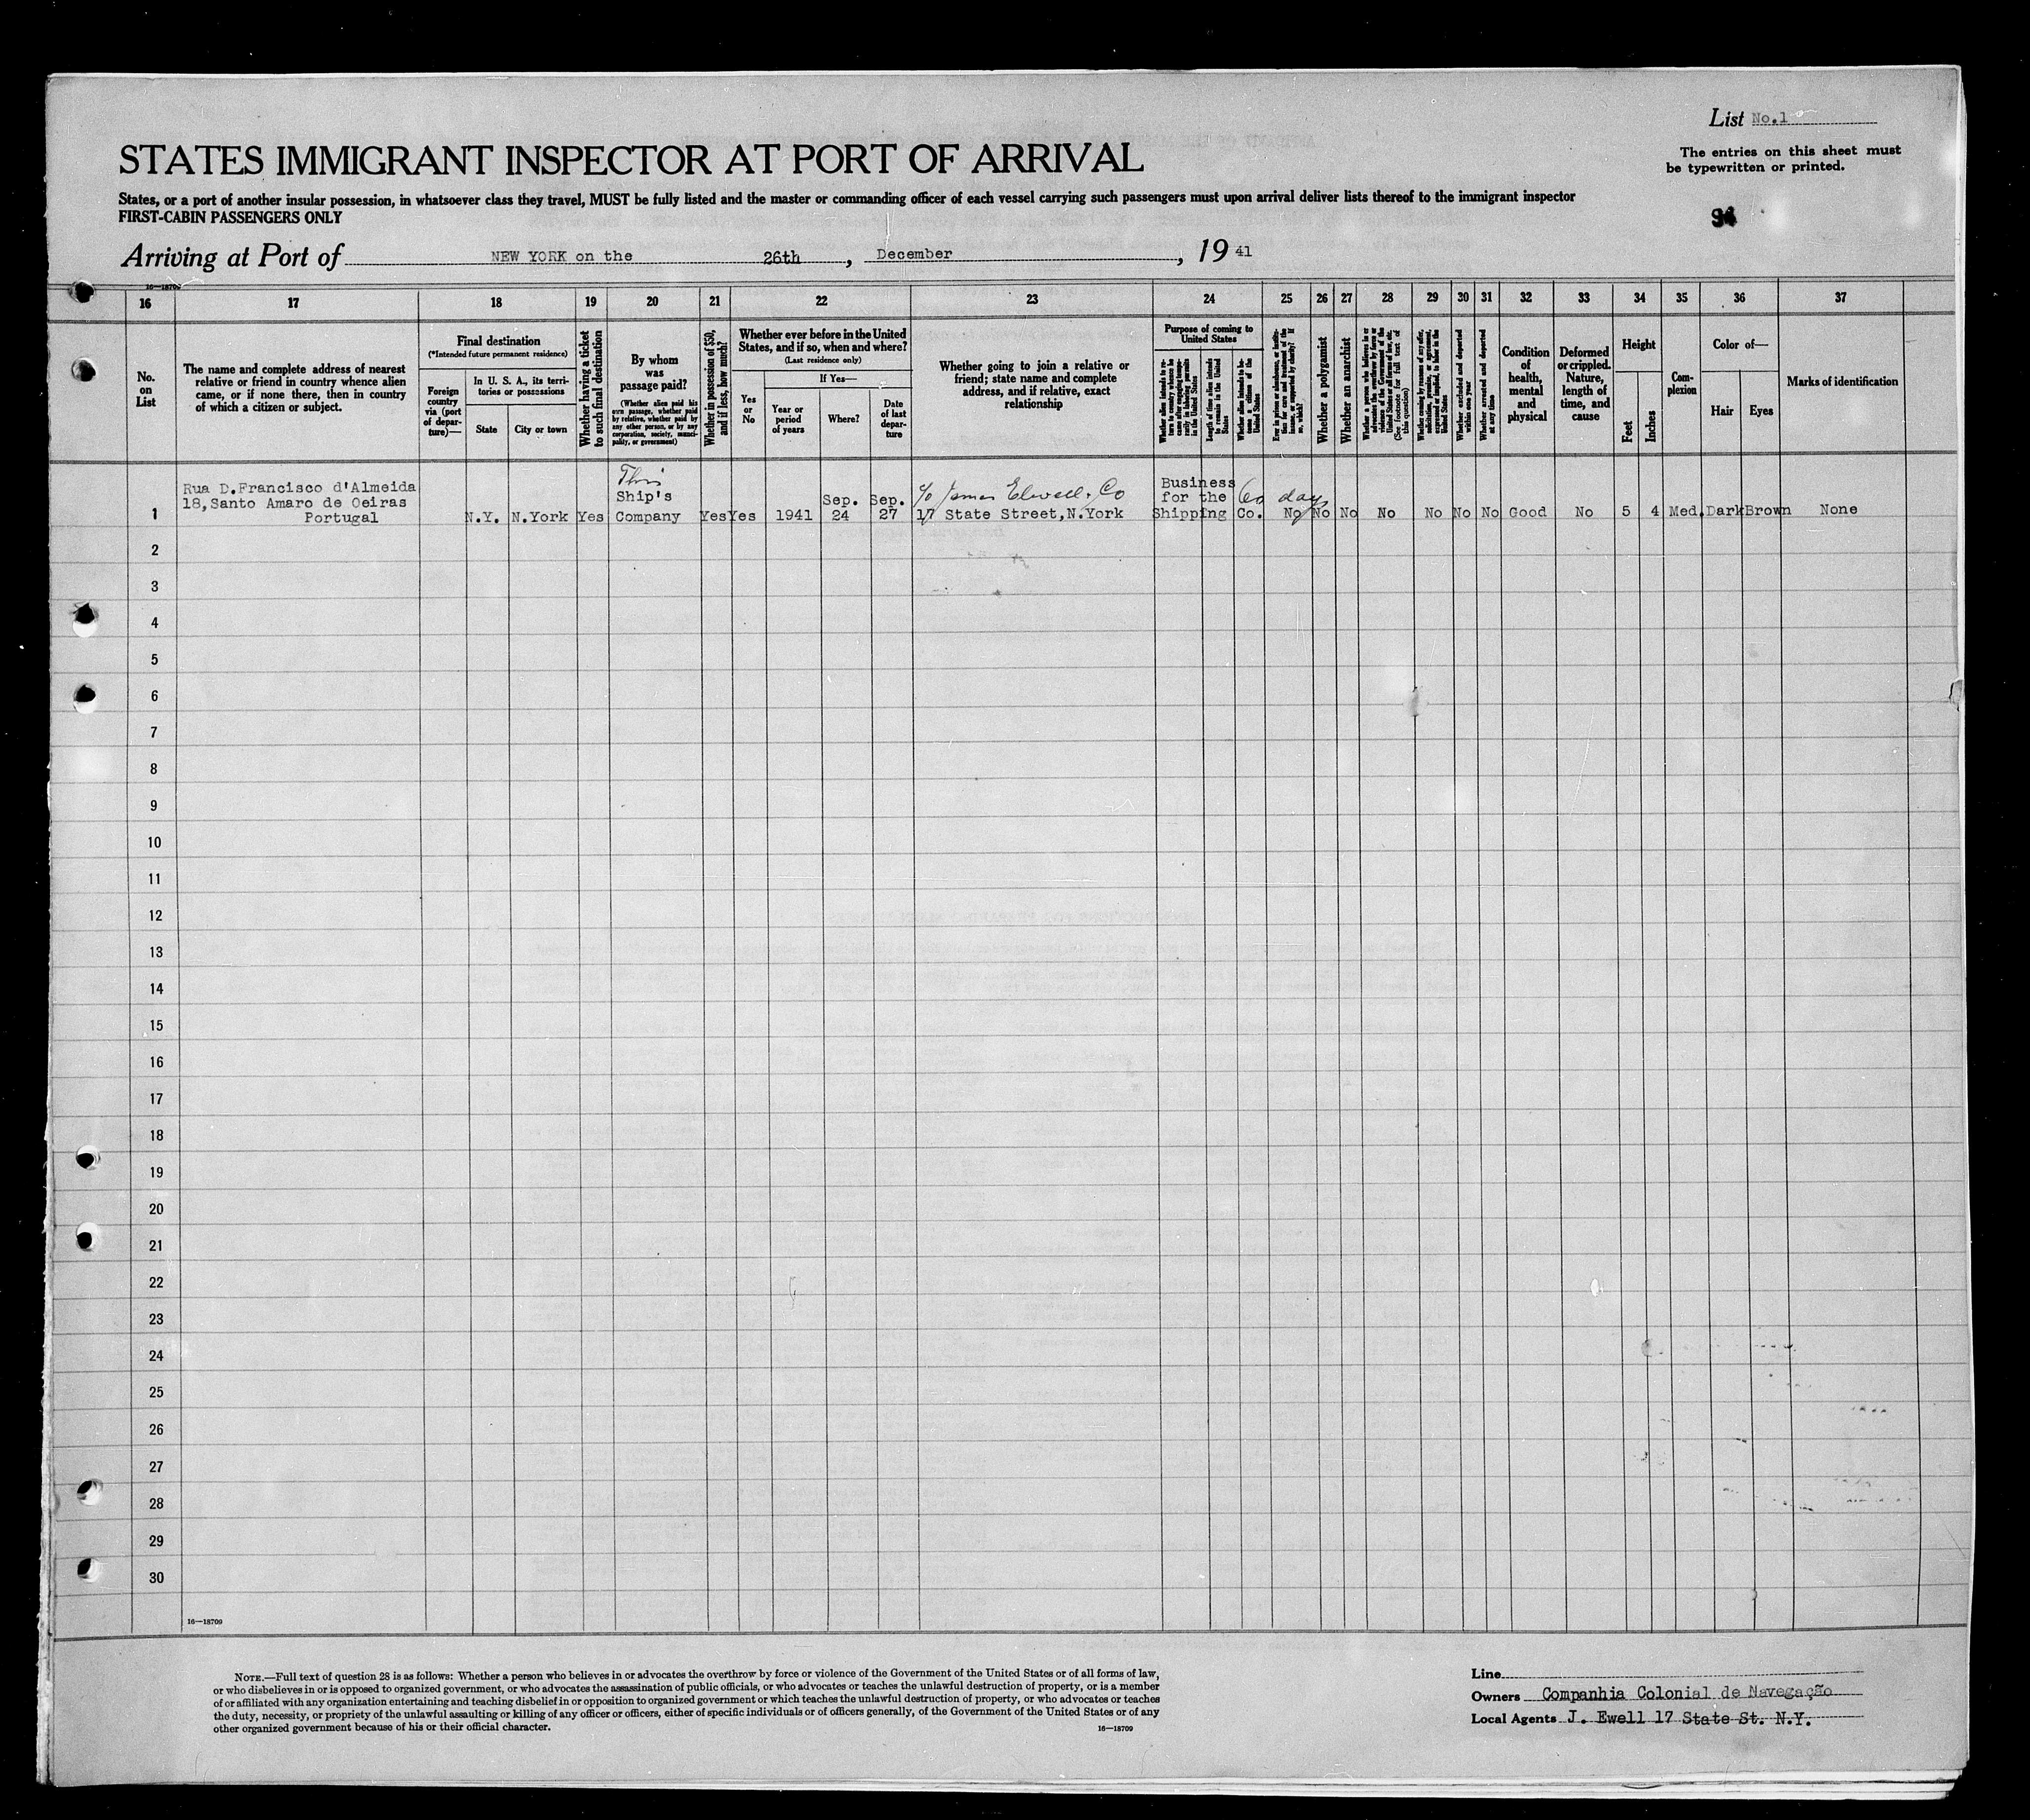 List No.1
STATES IMMIGRANT INSPECTOR AT PORT OF ARRIVAL
The entries on this sheet must
be typewritten or printed.
States, or a port of another insular possession, in whatsoever class they travel, MUST be fully listed and the master or commanding officer of each vessel carrying such passengers must upon arrival deliver lists thereof to the immigrant inspector
FIRST-CABIN PASSENGERS ONLY
Arriving at Port of NEW YORK on the 26th, December, 19 41
16—18709
16 17 18 19 20 21 22 23 24 25 26 27 28 29 30 31 32 33 34 35 36 37
No.
on
List
The name and complete address of nearest
relative or friend in country whence alien
came, or if none there, then in country
of which a citizen or subject.
Final destination
(*Intended future permanent residence)
Foreign
country
via (port
of depar-
ture)—
In U. S. A., its terri-
tories or possessions
State
City or town
Whether having a ticket
to such final destination
By whom
was
passage paid?
(Whether alien paid his
own passage, whether paid
by relative, whether paid by
any other person, or by any
corporation, society, munici-
pality, or government)
Whether in possession of $50,
and if less, how much?
Whether ever before in the United
States, and if so, when and where?
(Last residence only)
Yes
or
No
If Yes—
Year or
period
of years
Where?
Date
of last
depar-
ture
Whether going to join a relative or
friend; state name and complete
address, and if relative, exact
relationship
Purpose of coming to
United States
Whether alien intends to re-
turn to country whence he
came after engaging tempo-
rarily in laboring pursuits
in the United States
Length of time alien intends
to remain in the United
States
Whether alien intends to be-
come a citizen of the
United States
Ever in prison or almshouse, or institu-
tion for care and treatment of the
insane, or supported by charity? If
so, which?
Whether a polygamist
Whether an anarchist
Whether a person who believes in or
advocates the overthrow by force or
violence of the Government of the
United States or all forms of law, etc.
(See footnote for full text of
this question)
Whether coming by reasons of any offer,
solicitation, promise, or agreement,
expressed or implied, to labor in the
United States
Whether excluded and deported
within one year
Whether arrested and deported
at any time
Condition
of
health,
mental
and
physical
Deformed
or crippled.
Nature,
length of
time, and
cause
Height
Feet
Inches
Com-
plexion
Color of—
Hair
Eyes
Marks of identification
This
Rua D.Francisco d'Almeida
18,Santo Amaro de Oeiras
Portugal
1 N.Y. N.York Yes
Ship's
Company
Yes Yes 1941
Sep.
24
Sep.
27
c/o James Elwell & Co
17 State Street,N.York
Business
for the
Shipping Co.
60 days
No No No No No No No Good No 5 4 Med. Dark Brown None
2
3
4
5
6
7
8
9
10
11
12
13
14
15
16
17
18
19
20
21
22
23
24
25
26
27
28
29
30
16—18709
NOTE.—Full text of question 28 is as follows: Whether a person who believes in or advocates the overthrow by force or violence of the Government of the United States or of all forms of law,
or who disbelieves in or is opposed to organized government, or who advocates the assassination of public officials, or who advocates or teaches the unlawful destruction of property, or is a member
of or affiliated with any organization entertaining and teaching disbelief in or opposition to organized government or which teaches the unlawful destruction of property, or who advocates or teaches
the duty, necessity, or propriety of the unlawful assaulting or killing of any officer or officers, either of specific individuals or of officers generally, of the Government of the United States or of any
other organized government because of his or their official character.
16—18709
Line
Owners Companhia Colonial de Navegação
Local Agents J. Ewell 17 State St. N.Y.